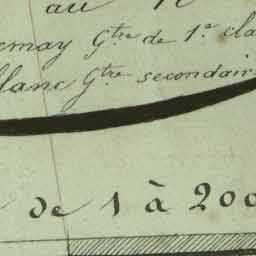 au
emay Gtre de 1.e cla
lanc Gtre secondair
de 1 à 200